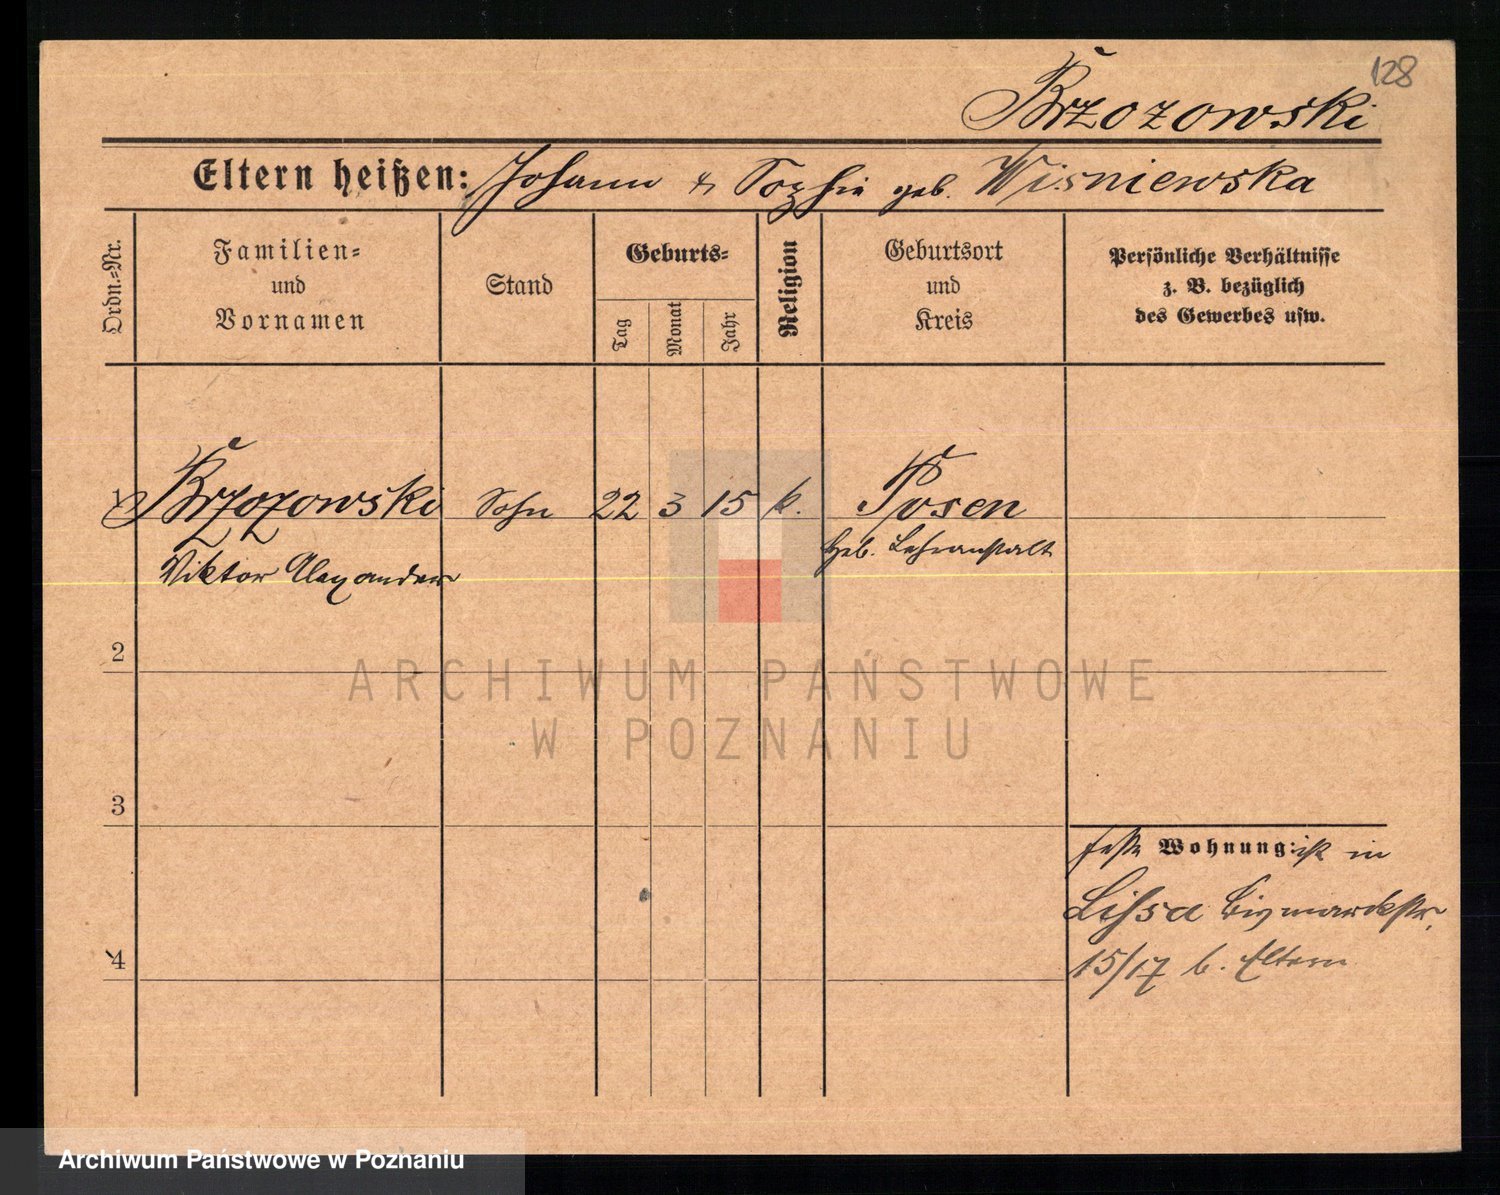 128
Brzozowski
Eltern heißen: Johann & Sophie geb. Wisniewska
Ordn.-Nr.
Familien-
und
Vornamen
Stand
Geburts-
Tag
Monat
Jahr
Religion
Geburtsort
und
Kreis
Persönliche Verhältnisse
z. B. bezüglich
des Gewerbes usw.
1 Brzozowski Sohn 22 3 15 k. Posen
Viktor Alexander
Heb. Lehranstalt
2
3
4
feste Wohnung: ist in
Lissa Bismarckstr.
15/17 b. Eltern
ARCHIWUM PAŃSTWOWE
W POZNANIU
Archiwum Państwowe w Poznaniu